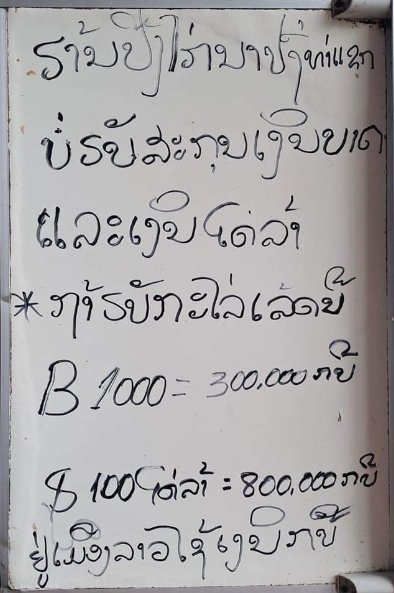 ຮ້ານປີ້ງໄກ່ນາປົ່ງທ່າແຂກ
ບໍ່ຮັບສະກຸນເງິນບາດ
ແລະເງິນໂດ່ລ້າ
* ຖ້າຮັບກະໄລ່ເລ້ດນີ້
B 1000 = 300,000 ກີບ
$ 100 ໂດ່ລ້າ = 800,000 ກີບ
ຢູ່ເມືອງລາວໃຊ້ເງິນກີບ